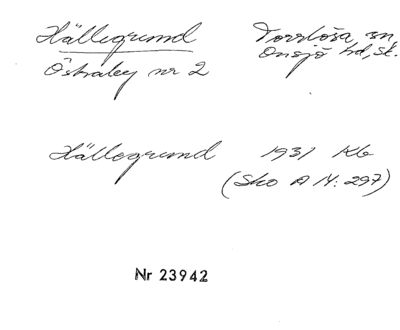 Hällegrund Torrlösa sn
Östraby nr 2 Onsjö hd, Sk.
Hällegrund 1931 Kb
(Sko A 14:297)
Nr 23942